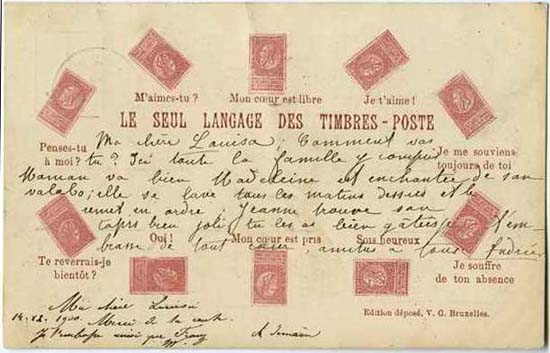 M'aimes-tu ?
Mon cœur est libre
Je t'aime !
LE SEUL LANGAGE DES TIMBRES-POSTE
Penses-tu
à moi ?
Je me souviens
toujours de toi
Ma chère Louisa, Comment vas
tu ? Ici toute la famille y compris
Maman va bien Madeleine est enchantée de son
elle se lave tous les matins dessus et le
remet en ordre Jeanne trouve son
bien joli, tu les as bien gâtées. Je t'em-
brasse de tout cœur, amitiés à tous
Oui !
Mon cœur est pris
Sois heureux
Te reverrais-je
bientôt ?
Je souffre
de ton absence
Ma chère Louisa
14.12.1900. Merci de ta carte
Je t'embrasse ainsi que
A demain
Edition déposé, V. G. Bruxelles.